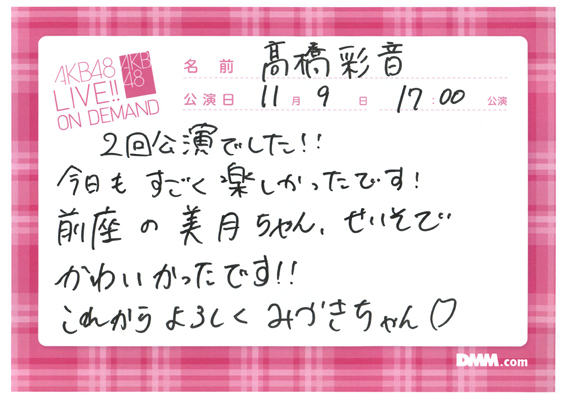 AKB48
LIVE!!
ON DEMAND
AKB
48
名前 髙橋彩音
公演日 11月9日 17:00公演
2回公演でした!!
今日も すごく 楽しかったです!
前座 の 美月ちゃん、せいそで
かわいかったです!!
これから よろしく みづきちゃん♡
DMM.com